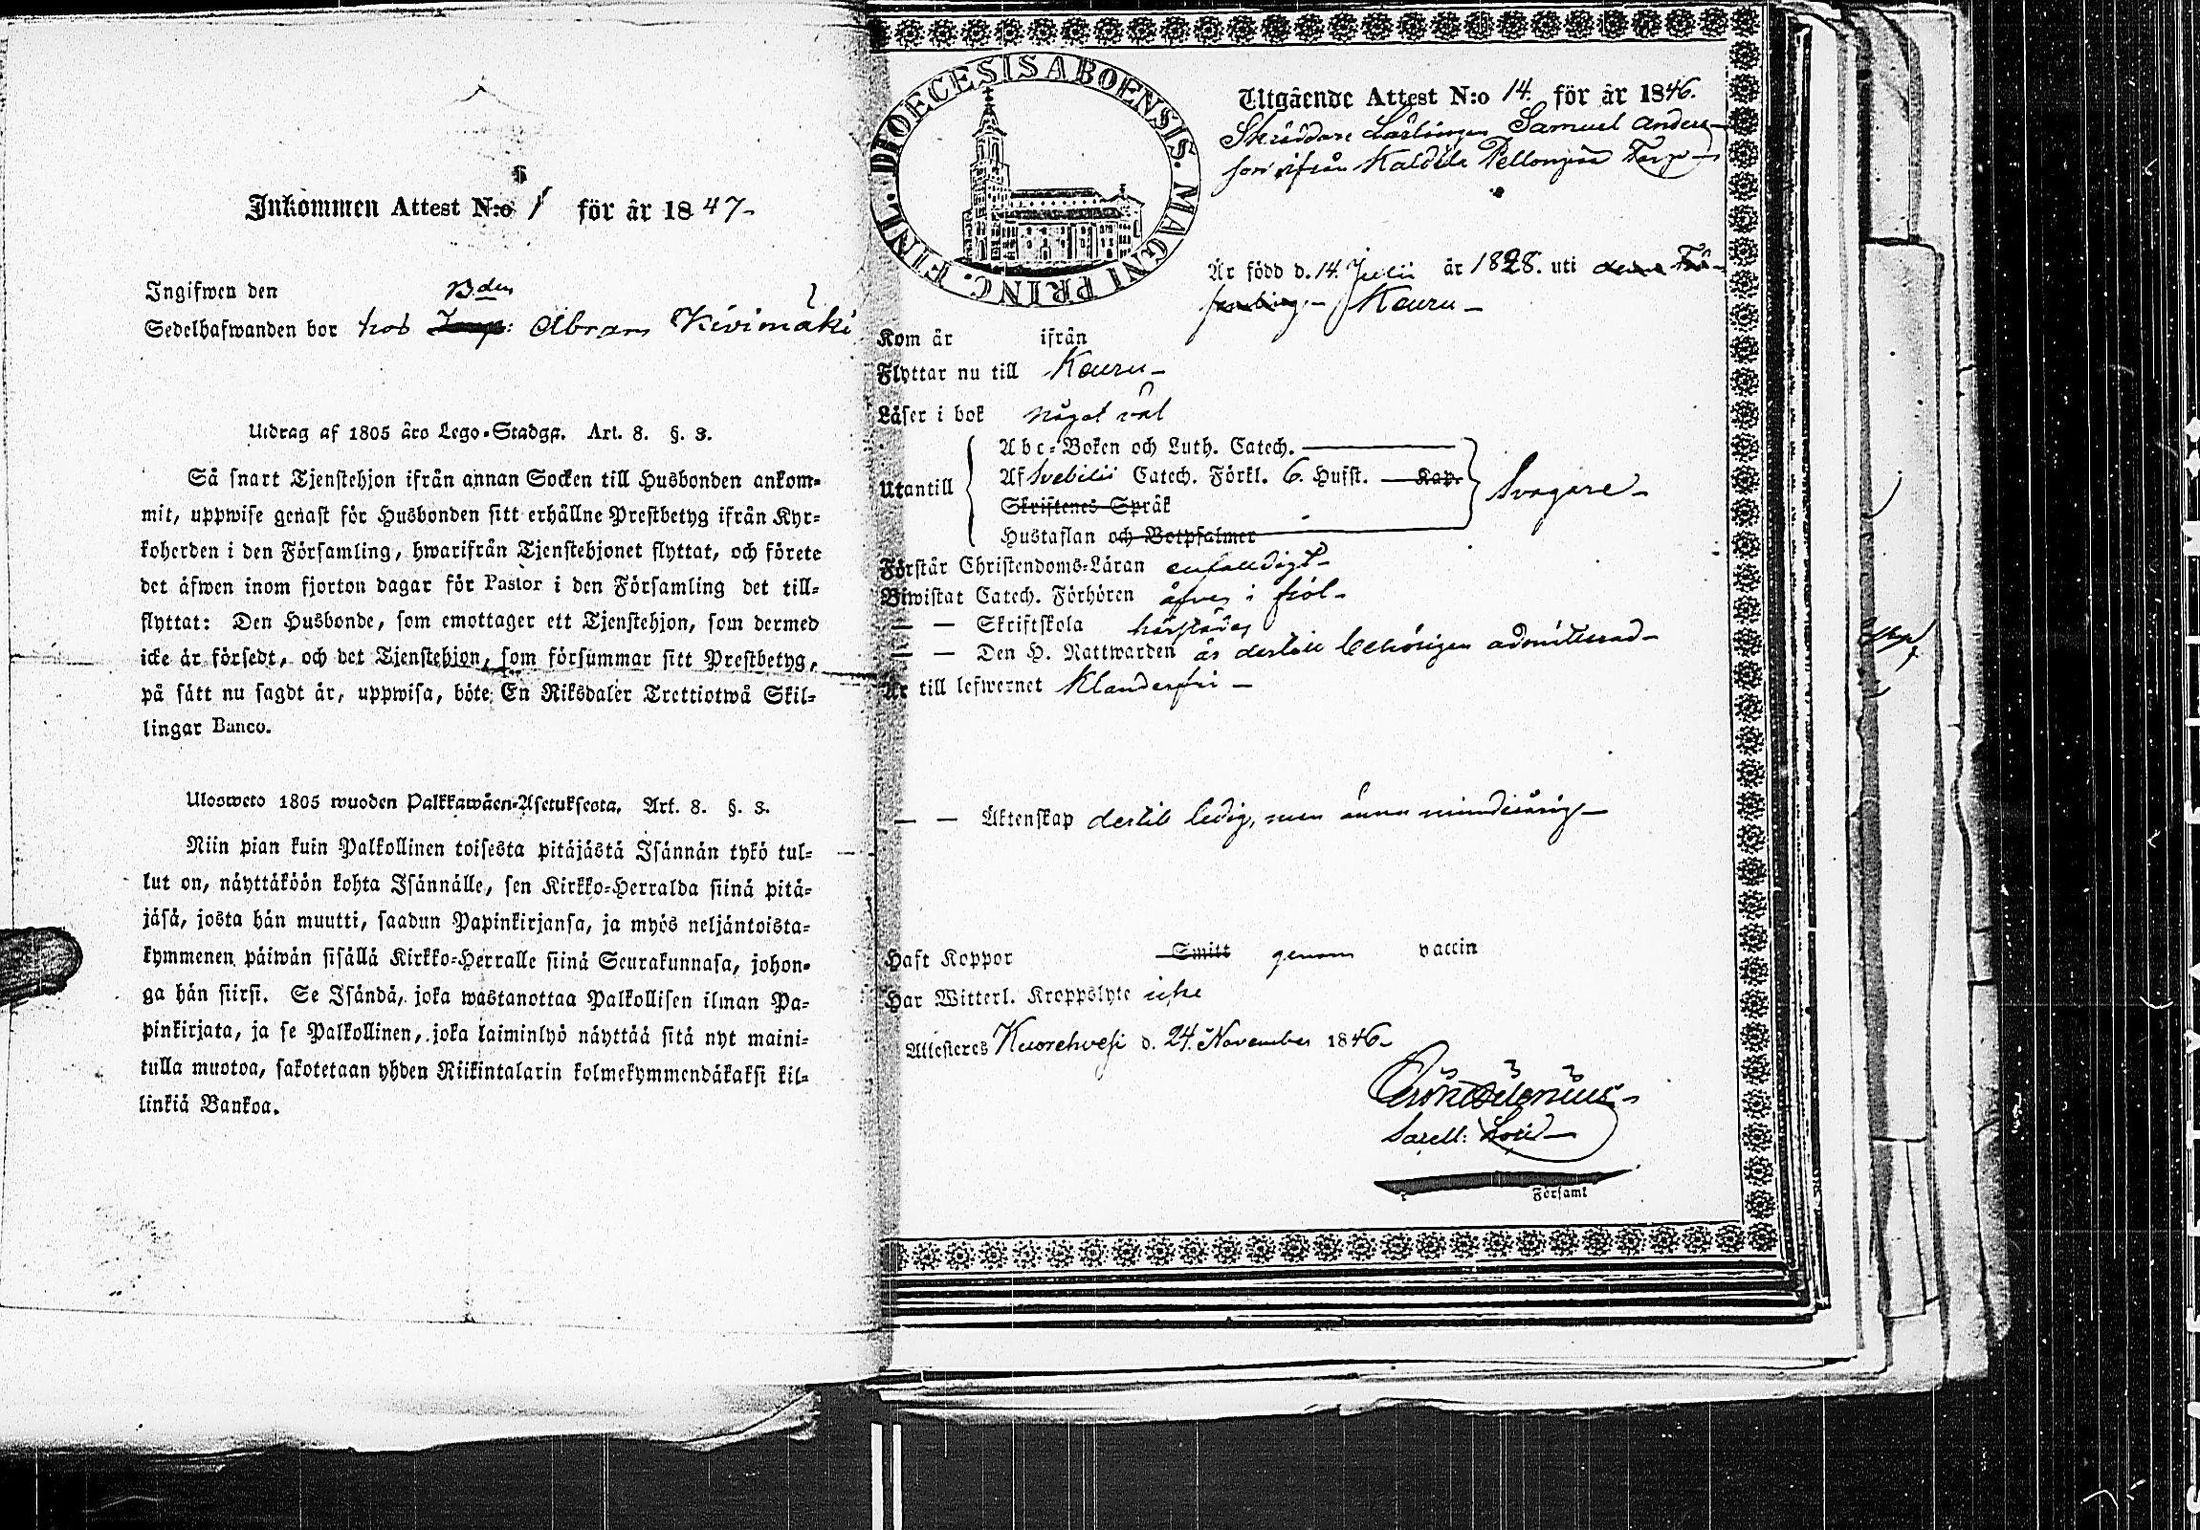 Inkommen Attest N:o 1 för år 1847-
Ingifwen den
Bden
Sedelhafwanden bor hos Abram Kivimäki
Utdrag af 1805 års Lego-Stadga. Art. 8. §. 3.
Så snart Tjenstehjon ifrån annan Socken till Husbonden ankom-
mit, uppwise genast för Husbonden sitt erhållne Prestbetyg ifrån Kyr-
koherden i den Församling, hwarifrån Tjenstehjonet flyttat, och förete
det äfwen inom fjorton dagar för Pastor i den Församling det till-
flyttat: Den Husbonde, som emottager ett Tjenstehjon, som dermed
icke är försedt, och det Tjenstehjon, som försummar sitt Prestbetyg,
på sätt nu sagdt är, uppwisa, böte En Riksdaler Trettiotwå Skil-
lingar Banco.
Ulosweto 1805 wuoden Palkkawäen-Asetuksesta. Art. 8. §. 3.
Niin pian kuin Palkollinen toisesta pitäjästä Isännän tykö tul-
lut on, näyttäköön kohta Isännälle, sen Kirkko-Herralda siinä pitä-
jäsä, josta hän muutti, saadun Papinkirjansa, ja myös neljäntoista-
kymmenen päiwän sisällä Kirkko-Herralle siinä Seurakunnasa, johon-
ga hän siirsi. Se Isändä, joka wastanottaa Palkollisen ilman Pa-
pinkirjata, ja se Palkollinen, joka laiminlyö näyttää sitä nyt maini-
tulla muotoa, sakotetaan yhden Riikintalarin kolmekymmendäkaksi kil-
linkiä Bankoa.
DIOECESIS ABOENSIS. MAGNI PRINC. FINL.
Utgående Attest N:o 14. för år 1846.
Skräddare Lärlingen Samuel Anders-
son ifrån Kaldila Torp
Är född d. 14. Julii år 1828. uti denna För-
samling- Keuru-
Kom år ifrån
Flyttar nu till Keuru-
Läser i bok något väl
Utantill
Abc-Boken och Luth. Catech.
Af Svebilii Catech. Förkl. 6. Hufst. Kap.
Skriftenes Språk
Hustaflan och Botpsalmer
Svagare-
Förstår Christendoms-Läran enfaldigt-
Biwistat Catech. Förhören äfven i fjol-
— — Skriftskola härstädes
— — Den H. Nattwarden är dertill behörigen admitterad-
Är till lefwernet Klanderfri-
— — Äktenskap dertill ledig, men ännu minderårig-
Haft Koppor Smitt genom vaccin
Har Witterl. Kroppslyte icke
Attesteras Kuorehvesi d. 24. November 1846-
Sacell:
Församl